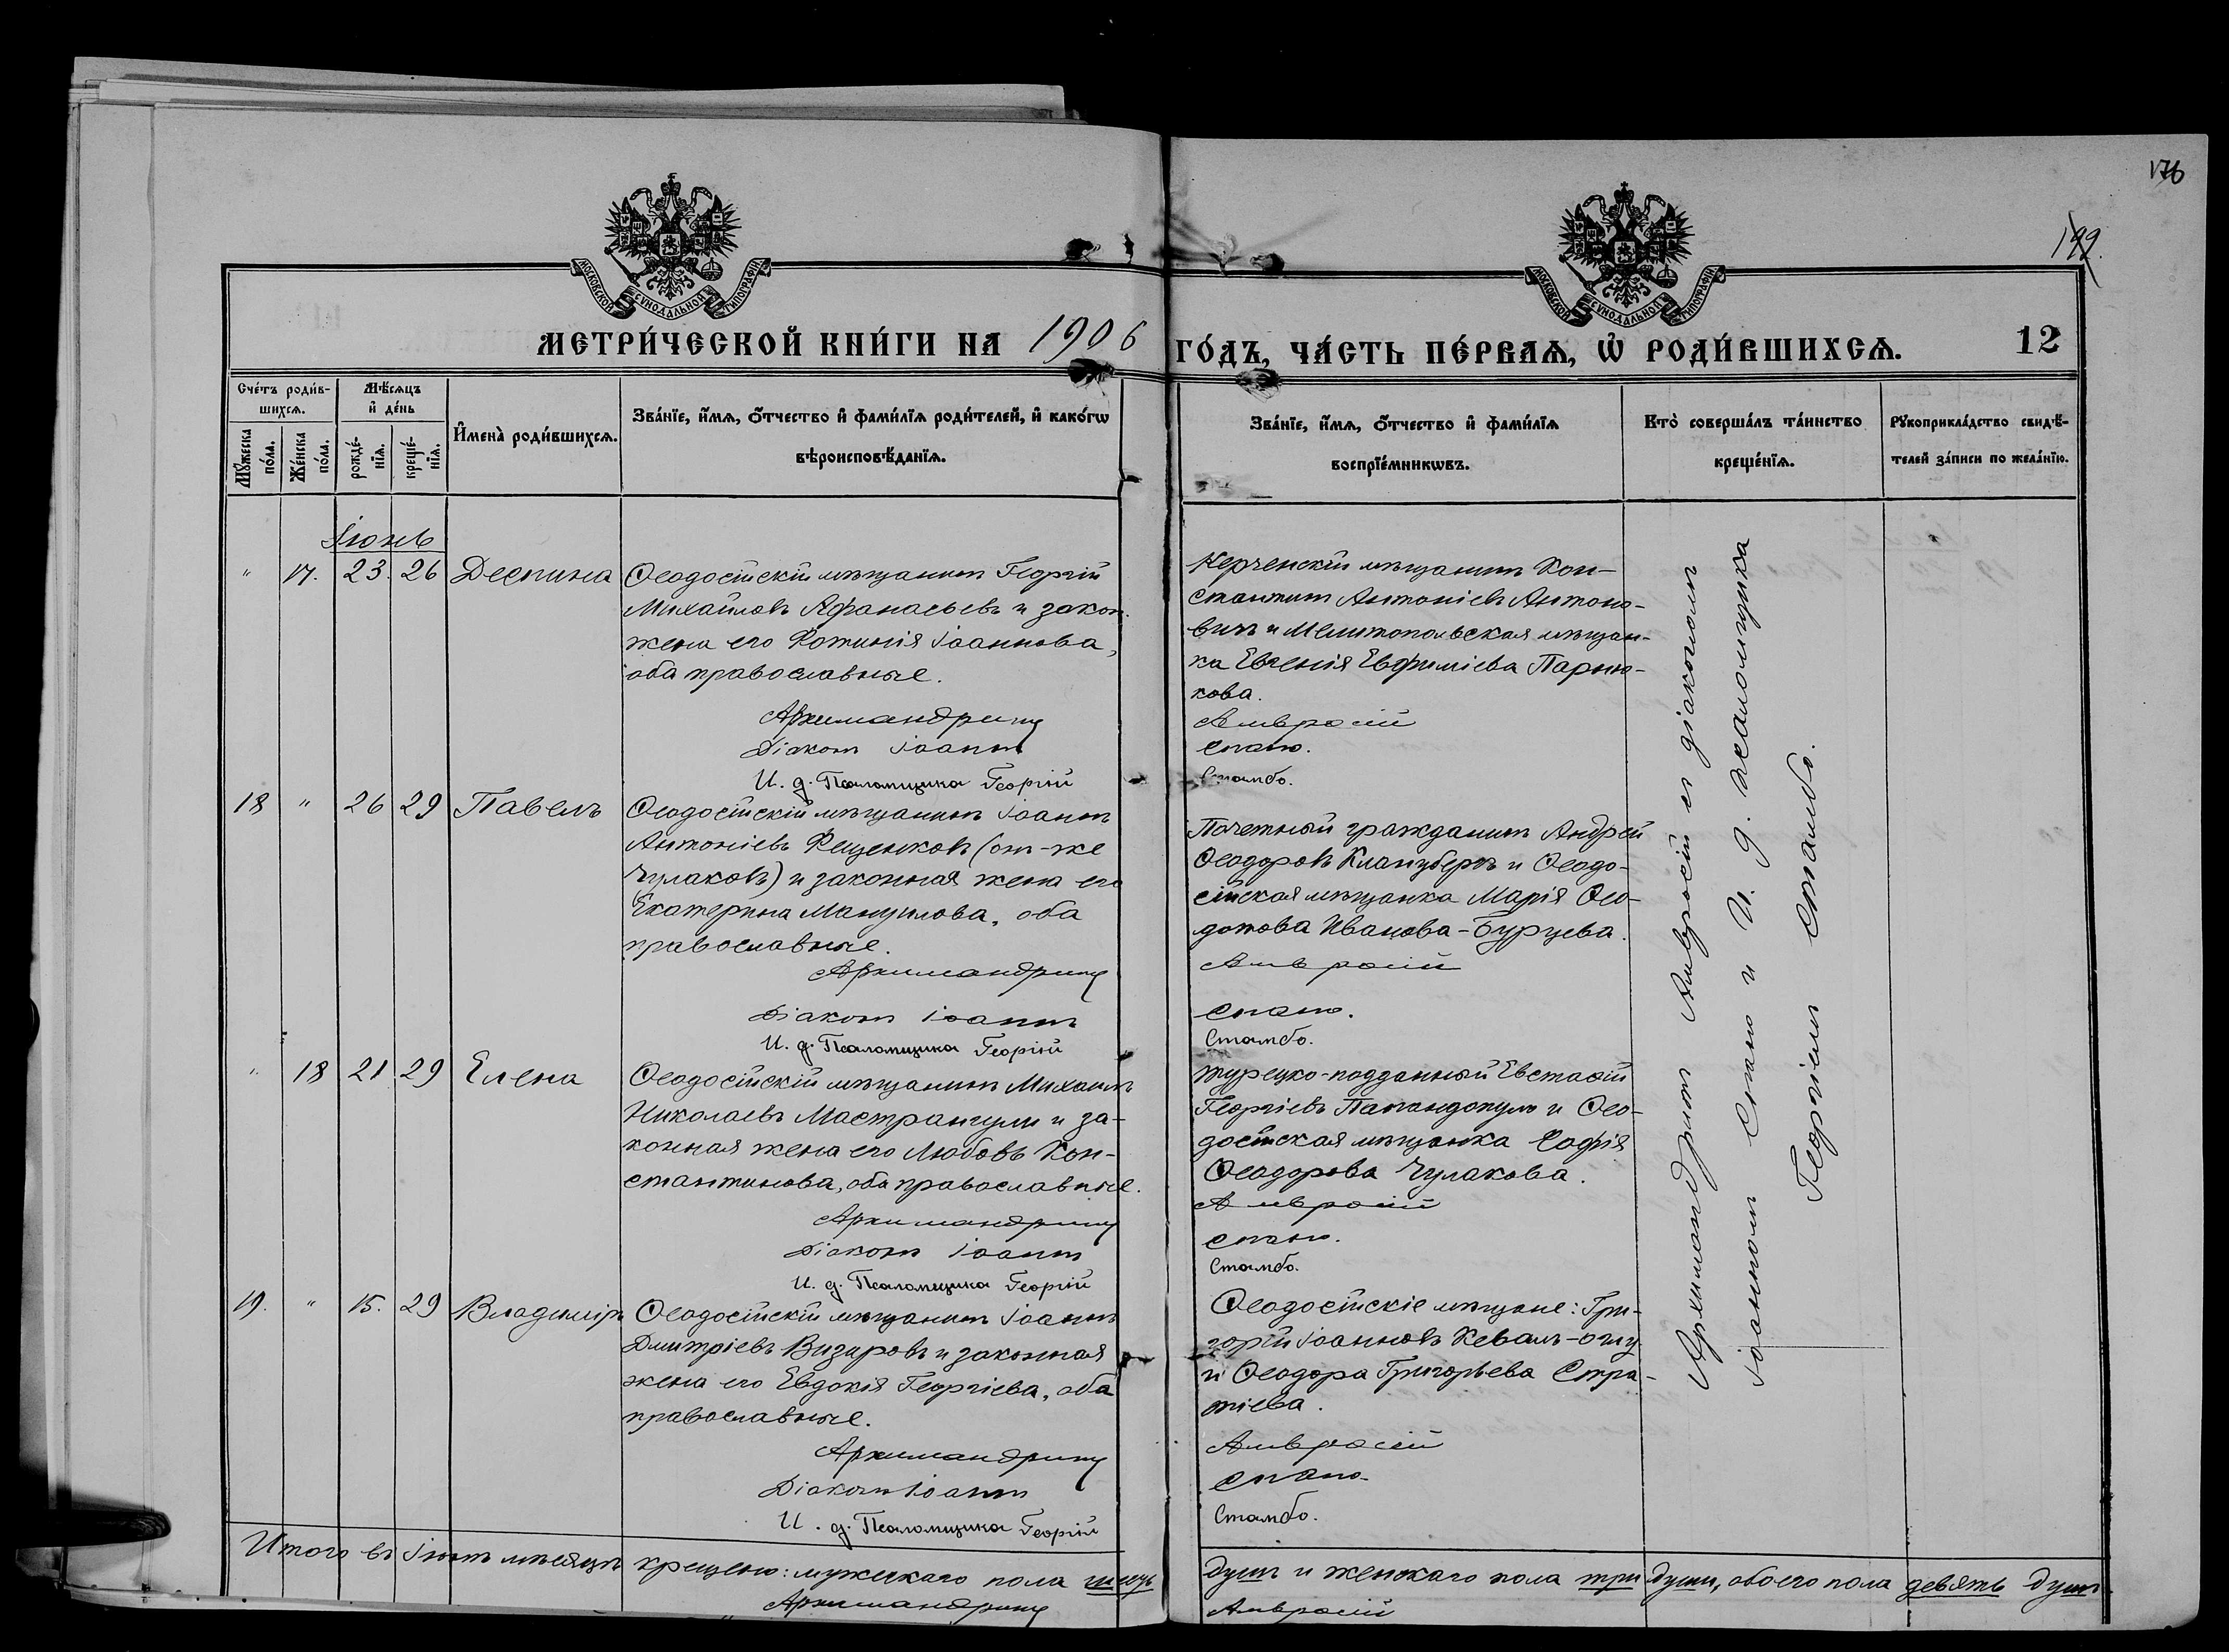 176
199.
МОСКОВСКОЙ СѴНОДАЛЬНОЙ ТИПОГРАФІИ
МОСКОВСКОЙ СѴНОДАЛЬНОЙ ТИПОГРАФІИ
МЕТРИ́ЧЕСКОЙ КНИ́ГИ НА 1906 ГО́ДЪ, ЧА́СТЬ ПЕ́РВАѦ, Ѡ҆ РОДИ́ВШИХСѦ. 12
Сче́тъ роди́в-
шихсѧ.
Мꙋ́жеска
по́ла.
Же́нска
по́ла.
Мѣ́сѧцъ
и҆ де́нь
рожде́-
нїѧ.
креще́-
нїѧ.
И҆мена̀ роди́вшихсѧ.
Зва́нїе, и҆́мѧ, ѻ҆́тчество и҆ фами́лїѧ роди́телей, и҆ како́гѡ
вѣроисповѣ́данїѧ.
Зва́нїе, и҆́мѧ, ѻ҆́тчество и҆ фами́лїѧ
воспрїе́мникѡвъ.
Кто̀ соверша́лъ та́инство
креще́нїѧ.
Рꙋкоприкла́дство свидѣ́-
телей за́писи по жела́нїю.
Іюнь
" 17. 23. 26 Деспина
Ѳеодосійскій мѣщанинъ Георгій
Михайловъ Афанасьевъ и закон.
жена его Фотинія Іоаннова,
оба православные.
Архимандритъ
Діаконъ Іоаннъ
И. д. Псаломщика Георгій
Керченскій мѣщанинъ Кон-
стантинъ Антоніевъ Антоно-
вичъ и Мелитопольская мѣщан-
ка Евгенія Евфиміева Парню-
кова.
Амвросій
Спано.
Стамбо.
18 " 26 29 Павелъ
Ѳеодосійскій мѣщанинъ Іоаннъ
Антоніевъ Фещенковъ (он-же
Чулаковъ) и законная жена его
Екатерина Мануилова, оба
православные.
Архимандритъ
Діаконъ Іоаннъ
И. д. Псаломщика Георгій
Почетный гражданинъ Андрей
Ѳеодоровъ Кланцбергъ и Ѳеодо-
сійская мѣщанка Марія Ѳео-
дотова Иванова-Бурцева.
Амвросій
Спано.
Стамбо.
" 18 21 29 Елена
Ѳеодосійскій мѣщанинъ Михаилъ
Николаевъ Мастрангули и за-
конная жена его Любовь Кон-
стантинова, оба православные.
Архимандритъ
Діаконъ Іоаннъ
И. д. Псаломщика Георгій
турецко-подданный Евстаѳій
Георгіевъ Папандопуло и Ѳео-
досійская мѣщанка Софія
Ѳеодорова Чулакова.
Амвросій
Спано.
Стамбо.
19. " 15. 29 Владиміръ
Ѳеодосійскій мѣщанинъ Іоаннъ
Дмитріевъ Визировъ и законная
жена его Евдокія Георгіева, оба
православные.
Архимандритъ
Діаконъ Іоаннъ
И. д. Псаломщика Георгій
Ѳеодосійскіе мѣщане: Гри-
горій Іоанновъ Кевалъ-оглу
и Ѳеодора Григорьева Стра-
тіева.
Амвросій
Спано.
Стамбо.
Архимандритъ Амвросій съ діакономъ
Іоанномъ Спано и И. д. псаломщика
Георгіемъ Стамбо.
Итого въ Іюнѣ мѣсяцѣ крещено: мужескаго пола шесть душъ и женскаго пола три души, обоего пола девять душъ.
Архимандритъ Амвросій